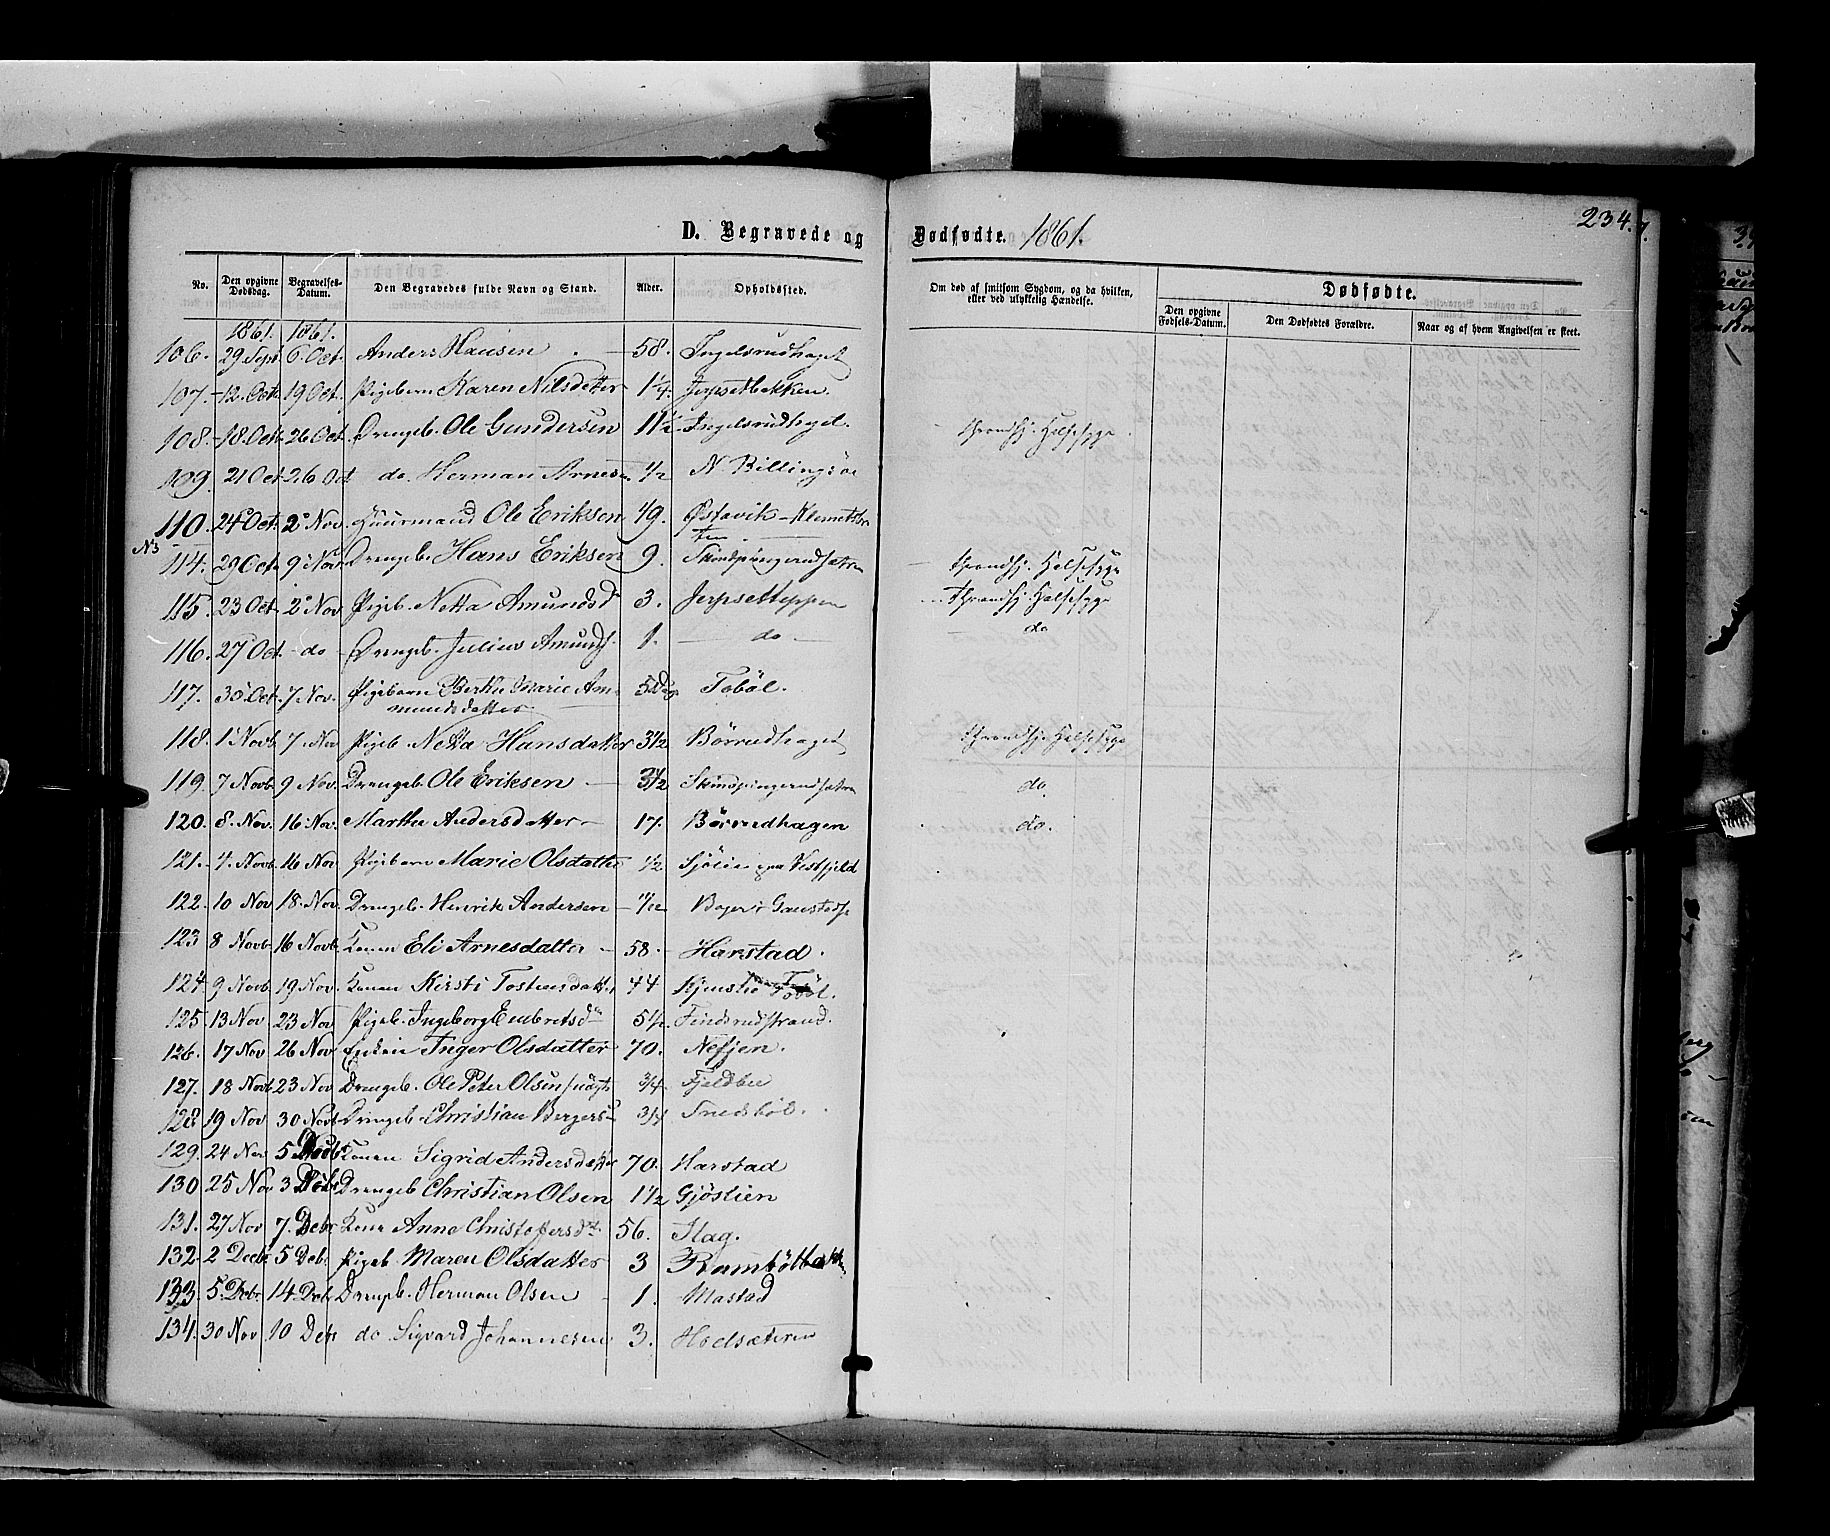 234.
D. Begravede og Dødfødte. 1861.
No. Den opgivne Dødsdag. Begravelses-Datum. Den Begravedes fulde Navn og Stand. Alder. Opholdssted. Om død af smitsom Sygdom, og da hvilken, eller ved ulykkelig Hændelse. Dødfødte.
Den opgivne Fødsels-Datum. Den Dødfødtes Forældre. Naar og af hvem Angivelsen er skeet.
1861. 1861.
106. 29 Sept 6 Oct. Anders Hansen 58. Ingelsrudhaget
107. 12. Oct. 19 Oct. Pigebarn Karen Nilsdatter 1 1/4. Jerpsetbakken.
108. 18. Oct. 26 Oct. Drengeb. Ole Gundersen 11 1/2 Ingelsrudhaget. Halssyge
109. 21 Oct. 26 Oct do. Herman Arnesen 1/2 N. Billingsøe
110. 24 Oct. 2 Nov. Huusmand Ole Eriksen 49. Østavik-Klemetts
N3
114. 29 Oct. 9 Nov. Drengeb. Hans Eriksen 9. Skindpungerudsætren Halssyge
115. 23 Oct. 2 Nov Pigeb. Netta Amundsd 3. Jerpsetteppen Halssyge
116. 27 Oct. do Drengeb. Julius Amunds. 1. do do
117. 30 Oct. 7 Nov. Pigebarn Berthe Marie Am
mundsdatter 5 Dag Tobøl.
118. 1 Novb 7. Nov Pigeb Netta Hansdatter 3 1/2 Børrudhaget Halssyge
119. 7 Novb. 9 Nov. Drengeb Ole Eriksen 3 1/2 Skindpungerudsætra do.
120. 8. Nov. 16 Nov. Marthe Andersdatter 17. Børrudhagen do.
121. 4. Novb. 16 Nov Pigebarn Marie Olsdatter 1/2 Vestfjeld
122. 10 Nov 18. Nov. Drengeb. Henrik Andersen 1/12 Gaustads
123 8 Novb. 16 Novb. Konen Eli Arnesdatter 58. Harstad.
124. 9 Novb. 19 Nov. Konen Kirsti Tostensdatt. 44 Tobøl.
125. 13 Nov 23 Nov Pigeb. Ingeborg Embretsd 5 1/2. Findsrudstrand.
126. 17 Nov 26 Nov Enken Inger Olsdatter 70. Nefjen.
127. 18 Novb. 23 Nov Drengeb. Ole Peter Olsen 3/4 Fjeldbu
128 19 Nov 30 Novb. Drengeb. Christian Bergers 3/4
129. 24 Nov 5 Konen Sigrid Andersdatter 70. Harstad
130 25 Nov 3 Debr Drengeb Christian Olsen 1 1/2 Gjøstien
131. 27 Nov 7. Debr Kone Anne Christoffersdt. 56. Slag.
132. 2 Decbr 5 Debr Pigeb Maren Olsdatter 3 Rambølbakken
133. 5. Debr. 14. Deb. Drengeb. Herman Olsen 1. Mastad
134. 30 Nov 10 Debr do Sigvard Johannesen 3. Hodsæteren